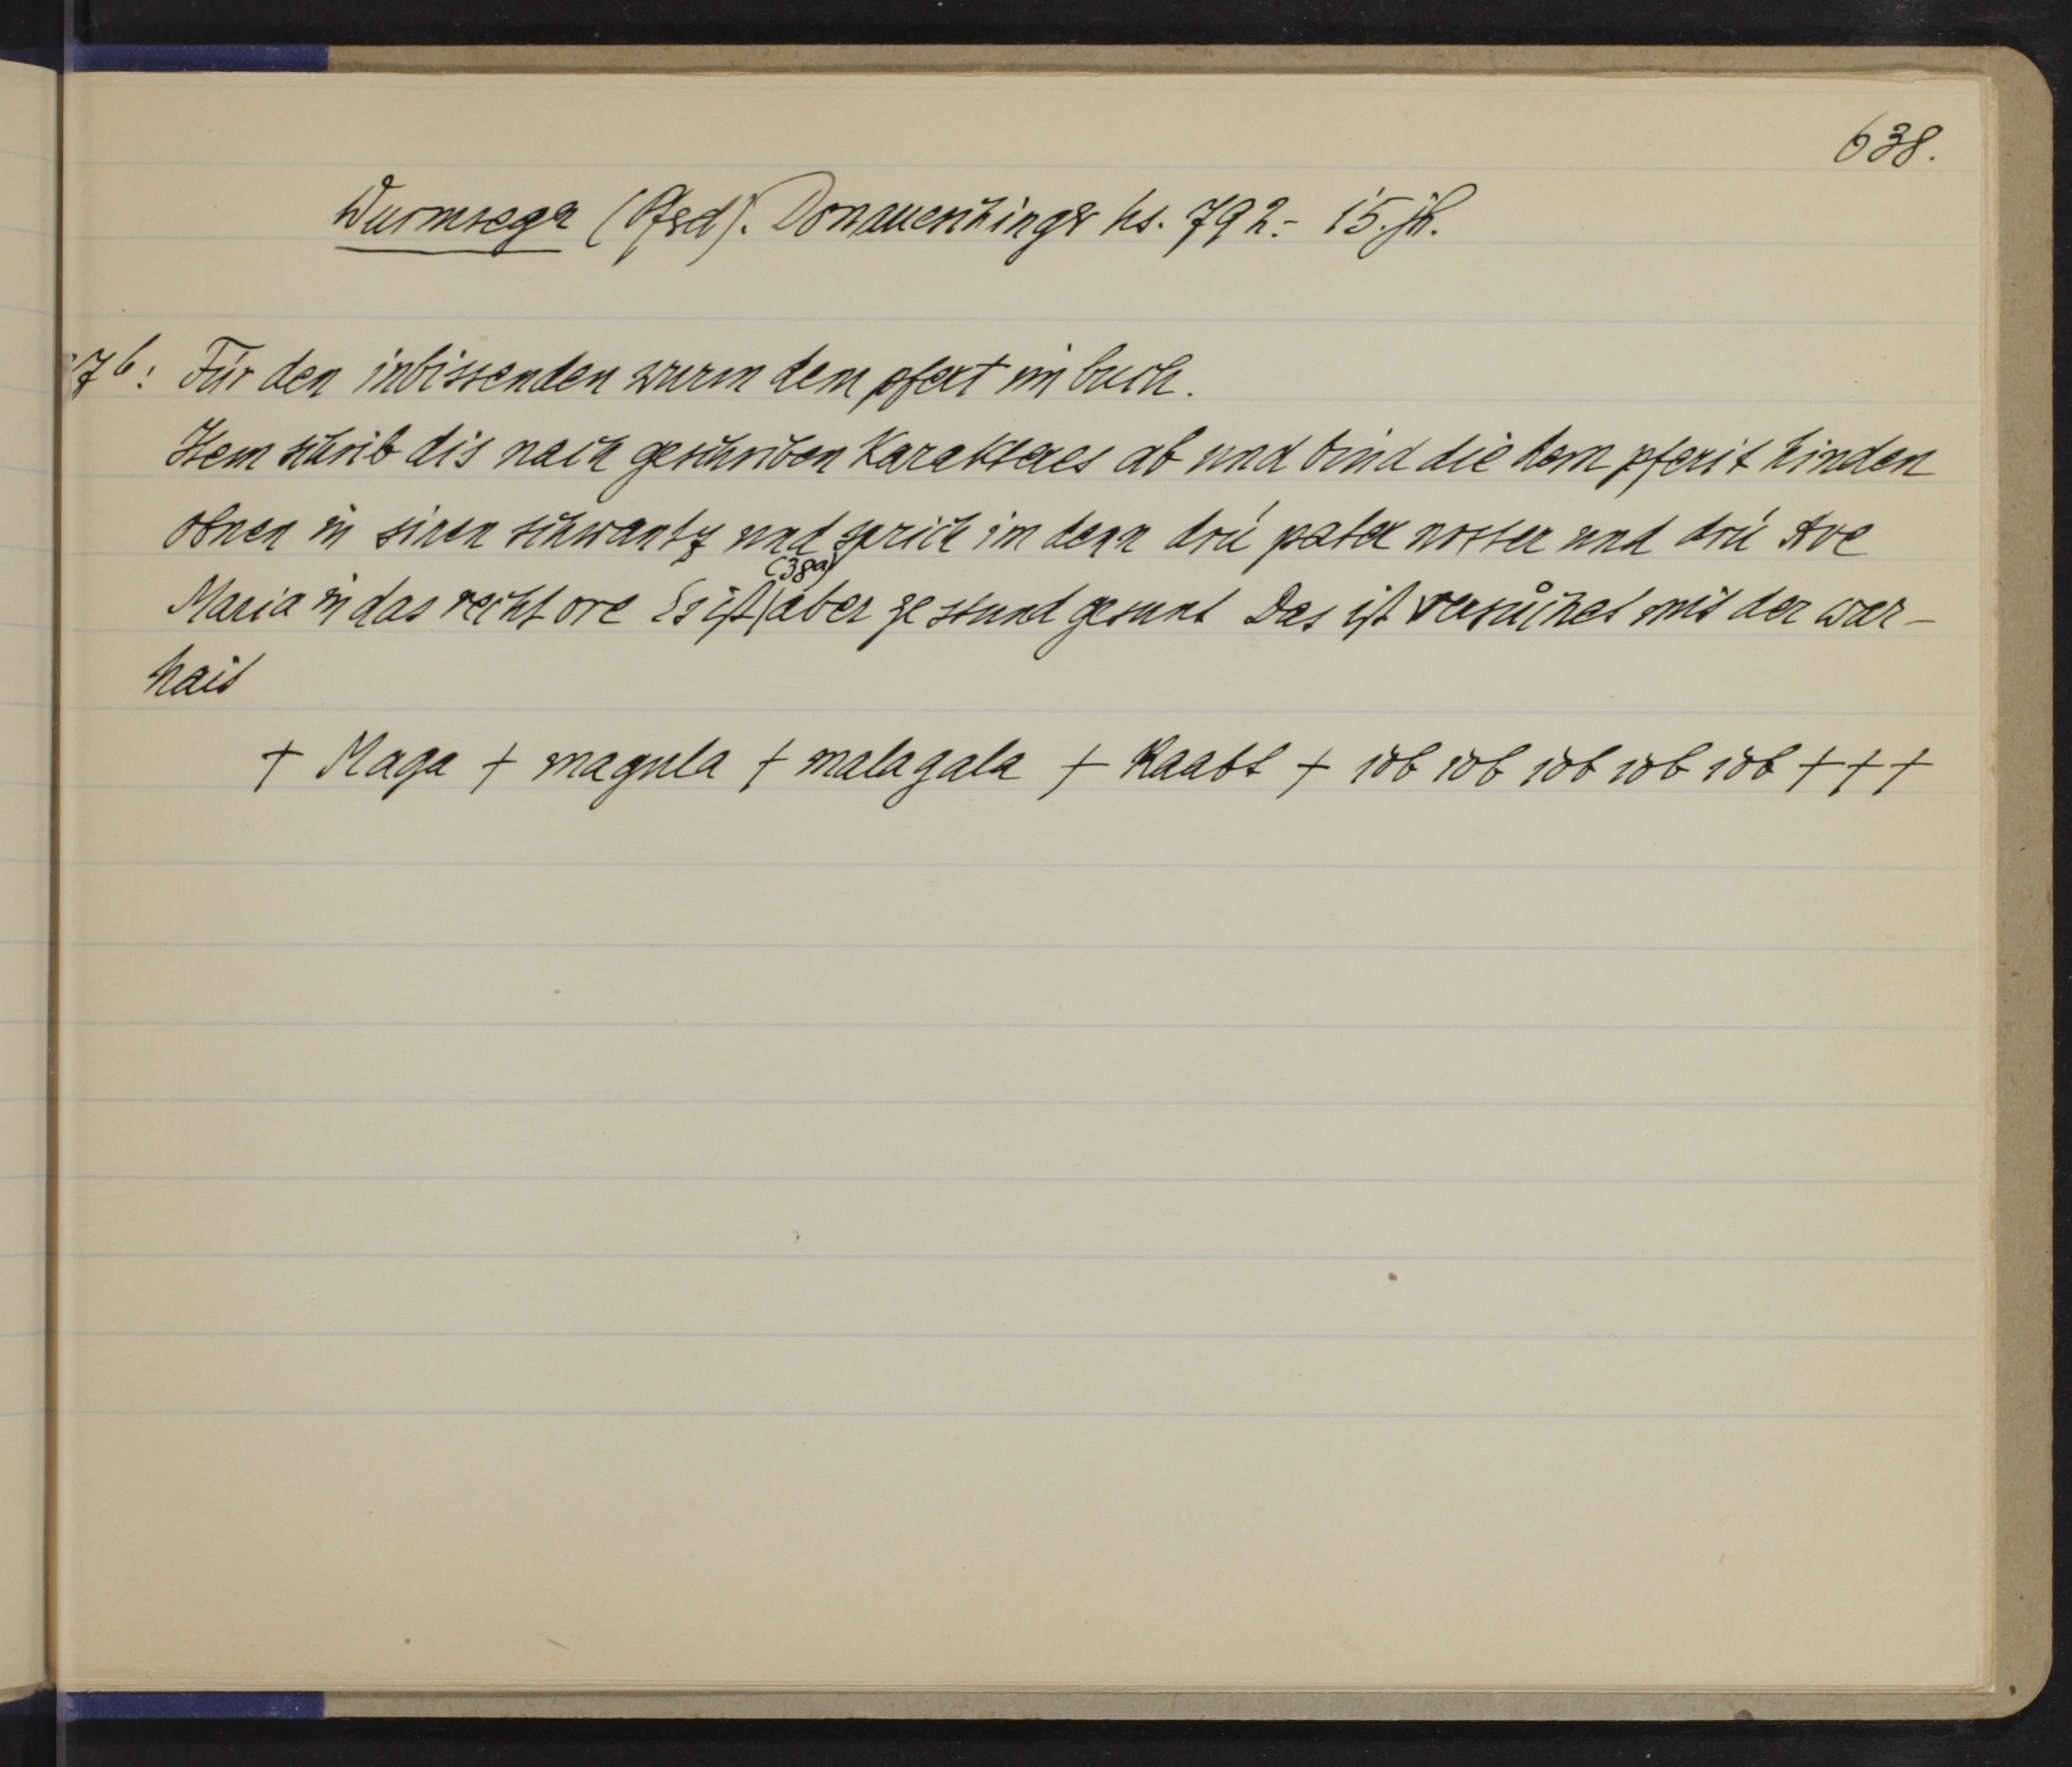 638.
Wurmsegen (Pferd). Donaueschinger hs. 792.- 15. jh.
37b: Für den inbissenden wurm dem pfert im buch.
Item schrib dis nach geschriben Karakteres ab und bind die dem pferit hinden
obnen in sinen schwantz und sprich im denn drü pater noster und drü Ave
Maria in das recht ore Es ist (38a) aber ze stund gesunt Das ist versůchet mit der war-
hait
+ Maga + magula + malagala + Raabt + iob iob iob iob iob + + +